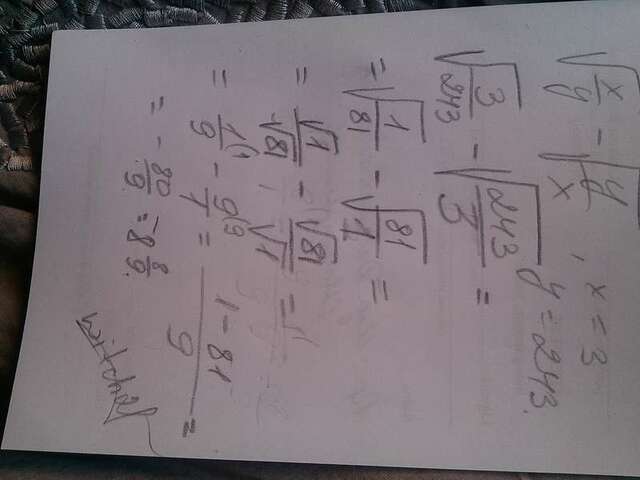 √(x/y) - √(y/x) , x = 3
y = 243.
√(3/243) - √(243/3) =
= √(1/81) - √(81/1) =
= √1/√81 - √81/√1 =
= 1/9 - 9/1 = (1 - 81)/9 =
= - 80/9 = -8 8/9.